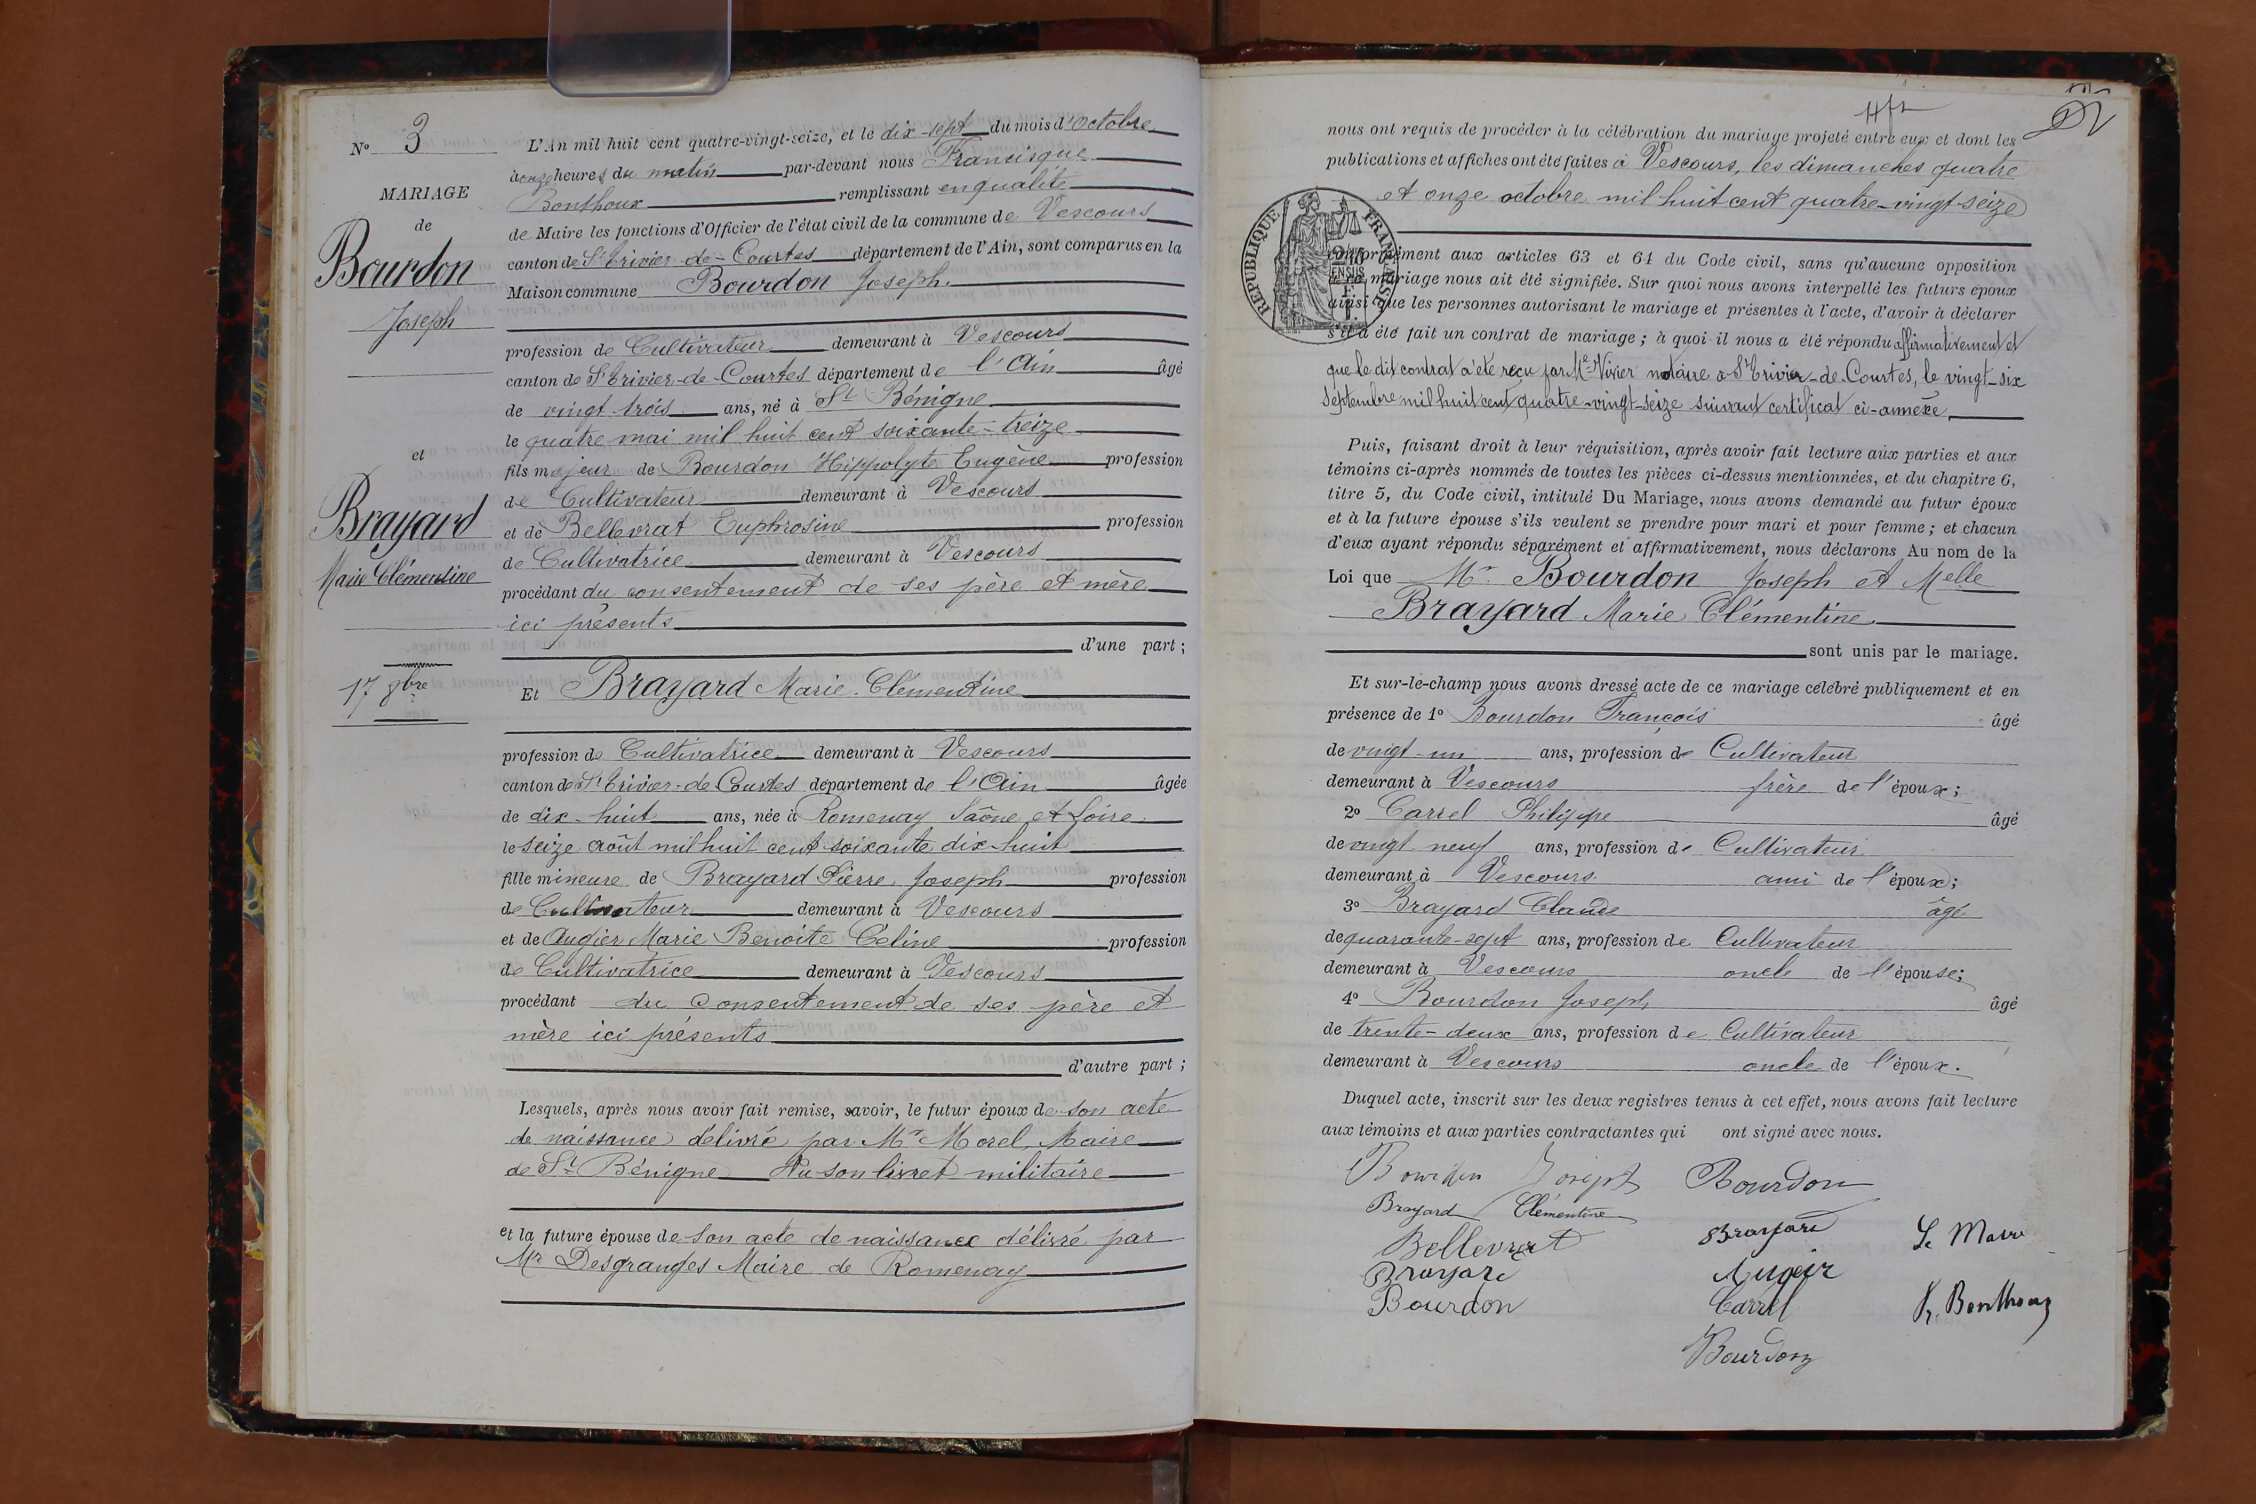 N° 3
MARIAGE
de
Bourdon
Joseph
et
Brayard
Marie Clémentine
17 8bre
L'An mil huit cent quatre-vingt-seize, et le dix-sept du mois d'Octobre
à onze heures du matin par-devant nous Francisque
Bonthoux remplissant en qualité
de Maire les fonctions d'Officier de l'état civil de la commune de Vescours
canton de St Trivier-de-Courtes département de l'Ain, sont comparus en la
Maison commune Bourdon Joseph.
profession de Cultivateur demeurant à Vescours
canton de St Trivier-de-Courtes département de l'Ain âgé
de vingt trois ans, né à St Bénigne
le quatre mai mil huit cent soixante-treize
fils majeur de Bourdon Hippolyte Eugène profession
de Cultivateur demeurant à Vescours
et de Bellevrat Euphrosine profession
de Cultivatrice demeurant à Vescours
procédant du consentement de ses père et mère
ici présents
d'une part ;
Et Brayard Marie Clémentine
profession de Cultivatrice demeurant à Vescours
canton de St Trivier-de-Courtes département de l'Ain âgée
de dix-huit ans, née à Romenay Saône et Loire
le seize août mil huit cent soixante dix-huit
fille mineure de Brayard Pierre Joseph profession
de Cultivateur demeurant à Vescours
et de Augier Marie Benoite Céline profession
de Cultivatrice demeurant à Vescours
procédant du consentement de ses père et
mère ici présents
d'autre part ;
Lesquels, après nous avoir fait remise, savoir, le futur époux de son acte
de naissance délivré par Mr Morel, Maire
de St Bénigne Vu son livret militaire
et la future épouse de son acte de naissance délivré par
Mr Desgranges Maire de Romenay
nous ont requis de procéder à la célébration du mariage projeté entre eux et dont les
publications et affiches ont été faites à Vescours, les dimanches quatre
et onze octobre mil huit cent quatre-vingt-seize
REPUBLIQUE FRANÇAISE
conformément aux articles 63 et 64 du Code civil, sans qu'aucune opposition
à ce mariage nous ait été signifiée. Sur quoi nous avons interpellé les futurs époux
ainsi que les personnes autorisant le mariage et présentes à l'acte, d'avoir à déclarer
s'il a été fait un contrat de mariage ; à quoi il nous a été répondu affirmativement et
que le dit contrat a été reçu par Me Vivier notaire à St Trivier-de-Courtes, le vingt-six
Septembre mil huit cent quatre-vingt-seize suivant certificat ci-annexé,
Puis, faisant droit à leur réquisition, après avoir fait lecture aux parties et aux
témoins ci-après nommés de toutes les pièces ci-dessus mentionnées, et du chapitre 6,
titre 5, du Code civil, intitulé Du Mariage, nous avons demandé au futur époux
et à la future épouse s'ils veulent se prendre pour mari et pour femme ; et chacun
d'eux ayant répondu séparément et affirmativement, nous déclarons Au nom de la
Loi que Mr Bourdon Joseph et Melle
Brayard Marie Clémentine
sont unis par le mariage.
Et sur-le-champ nous avons dressé acte de ce mariage célébré publiquement et en
présence de 1° Bourdon François âgé
de vingt-un ans, profession de Cultivateur
demeurant à Vescours frère de l'époux ;
2° Carrel Philippe âgé
de vingt neuf ans, profession de Cultivateur
demeurant à Vescours ami de l'époux ;
3° Brayard Claude âgé
de quarante-sept ans, profession de Cultivateur
demeurant à Vescours oncle de l'épouse ;
4° Bourdon Joseph âgé
de trente-deux ans, profession de Cultivateur
demeurant à Vescours oncle de l'époux.
Duquel acte, inscrit sur les deux registres tenus à cet effet, nous avons fait lecture
aux témoins et aux parties contractantes qui ont signé avec nous.
Bourdon Joseph Bourdon
Brayard Clémentine
Bellevrat Brayard Le Maire
Brayard Augier
Bourdon Carrel Fr. Bonthoux
Bourdon